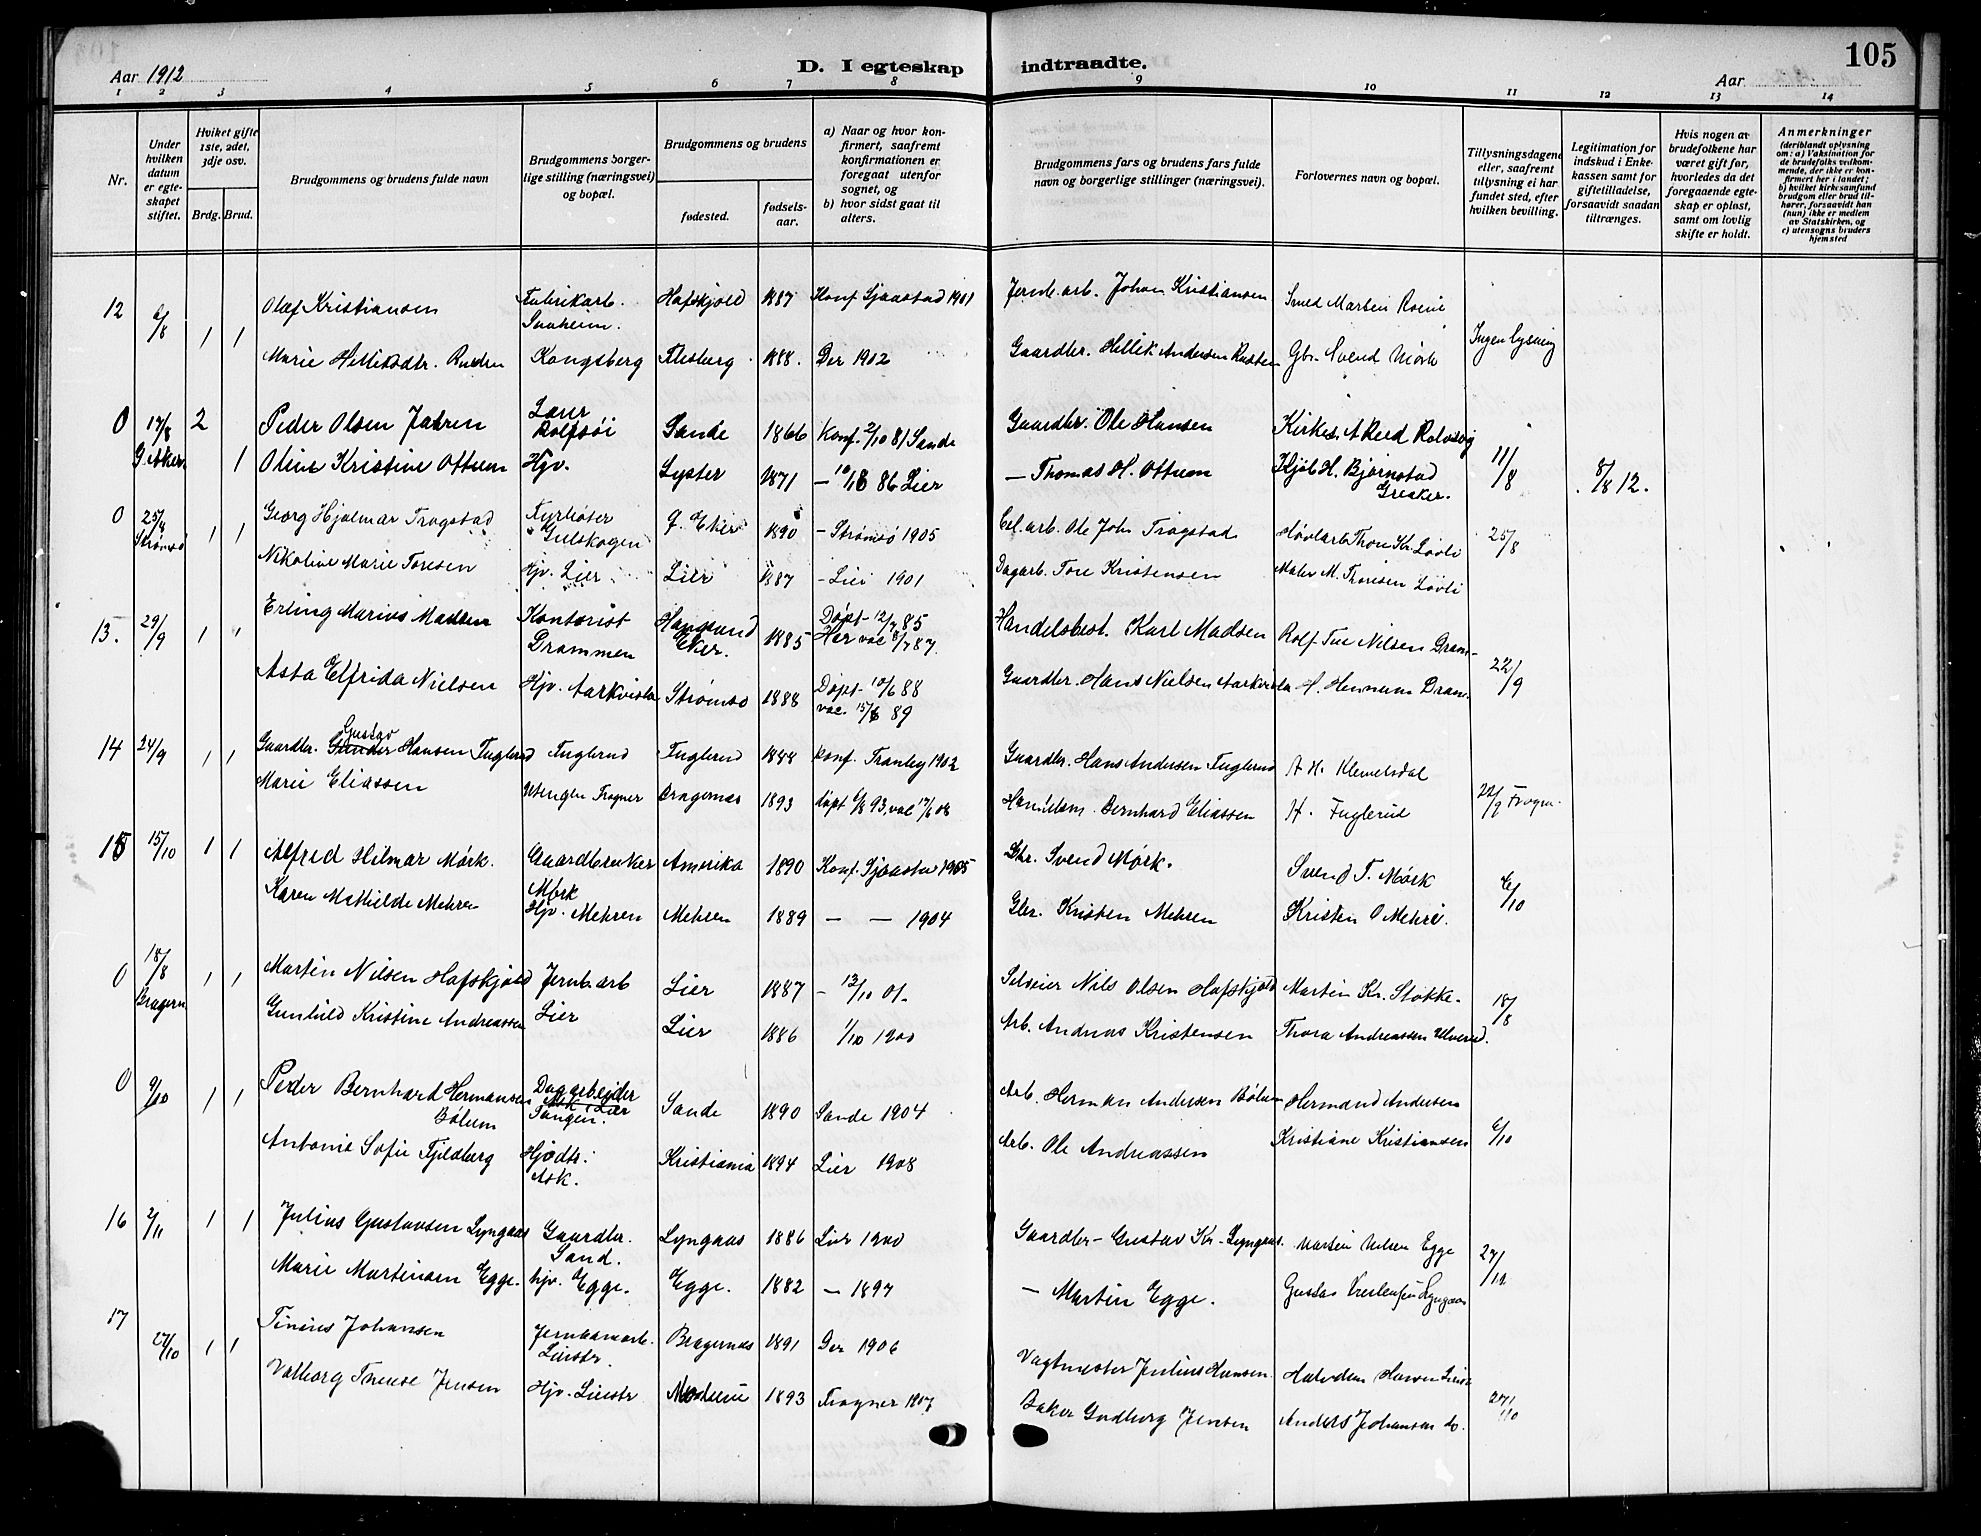 Aar 1912
D. I egteskap indtraadte.
Aar
105
1 2 3 4 5 6 7 8 9 10 11 12 13 14
Nr.
Under hvilken datum er egteskapet stiftet.
Hviket gifte 1ste, 2det, 3dje osv.
Brdg. Brud.
Brudgommens og brudens fulde navn
Brudgommens borgerlige stilling (næringsvei) og bopæl.
Brudgommens og brudens
fødested.
fødselsaar.
a) Naar og hvor konfirmert, saafremt konfirmationen er foregaat utenfor sognet, og
b) hvor sidst gaat til alters.
Brudgommens fars og brudens fars fulde navn og borgerlige stillinger (næringsvei).
Forlovernes navn og bopæl.
Tillysningsdagene eller, saafremt tillysning ei har fundet sted, efter hvilken bevilling.
Legitimation for indskud i Enkekassen samt for giftetilladelse, forsaavidt saadan tiltrænges.
Hvis nogen av brudefolkene har været gift før, hvorledes da det foregaaende egteskap er opløst, samt om lovlig skifte er holdt.
Anmerkninger
(deriblandt oplysning om: a) Vaksination for de brudefolks vedkommende, der ikke er konfirmert her i landet;
b) hvilket kirkesamfund brudgom eller brud tilhører, forsaavidt han (hun) ikke er medlem av Statskirken, og
c) utensogns bruders hjemsted
12 6/8 1 1 Olaf Kristiansen Fabrikarb. Saaheim. Hafskjold 1887 Konf. Sjaastad 1901 Jernb. arb. Johan Kristiansen Smed Martin
Marie Kongsberg Flesberg 1888. Der 1902 Gaardbr. Hellik Andersen Gbr. Svend Mørk Ingen lysning
0 17/8 G. Aker 2 Peder Olsen Jahren Rolfsøi Sande 1866 Konf. 2/10 81 Sande Gaardbr. Ole Hansen
1 Oline Kristine Ottum Hjv. Lyster 1871 — 86 Lier — Thomas H. Ottum Kjøb H. Bjørnstad Greaker. 11/8 8/8 12.
0 25/8 Strømsø 1 1 Georg Hjalmar Trogstad Fyrbøter Gulskogen Ø. Eker 1890 — Strømsø 1905 Cel. arb. Ole Joh. Trogstad Høvlarb Thon Kr. Løvli 25/8
Nikoline Marie Toresen Hjv. Lier Lier 1887 — Lier 1901 Dagarb. Tore Kristensen Maler M. Thoresen Løvli
13. 29/9 1 1 Erling Marius Madsen Kontorist Drammen Haugsund Eker. 1885 Døpt 12/7 85 Har vac 8/7 87. Handelsbest. Karl Madsen Rolf Nilsen Dram.
Asta Elfrida Nielsen Hjv. Aarkvisla Strømsø 1888 Døpt 10/6 88 vac. 15/6 89 Gaardbr. Hans Nielsen Aarkvisla H. Hennum Dram. 22/9
14 24/9 1 1 Gaardbr. Gustav Hansen Fuglerud Fuglerud Fuglerud 1888 Konf. Tranby 1902 Gaardbr. Hans Andersen Fuglerud A H. Klemetsdal
Marie Eliassen Frogner Bragernæs 1893 døpt 6/8 93, vac 17/6 06 Bernhard Eliassen H. Fuglerud 22/9 Frogn.
15 15/10 1 1 Alfred Hilmar Mørk. Gaardbruker Mørk Amerika 1890 Konf. Sjaastad 1905 Gbr. Svend Mørk. Svend T. Mørk
Karen Mathilde Mehren Hjv. Mehren Mehren 1889 — — 1904 Gbr. Kristen Mehren Kristen O Mehre. 6/10
0 18/8 Bragern 1 1 Martin Nilsen Hafskjold Jernb. arb Lier Lier 1887 — 13/10 01. Selveier Nils Olsen Hafskjold Martin Kr. Stokke. 18/8
Gunhild Kristine Andreassen Lier 1886 1/10 1900 Arb. Andreas Kristensen Thora Andreassen Ulverud.
0 9/10 1 1 Peder Bernhard Hermansen Bölum Dagarbeider Ask i Lier Tangen. Sande 1890 Sande 1904 Arb. Herman Andersen Bölum Hermand Andersen
Antonie Sofie Fjeldberg Ask. Kristiania 1894 Lier 1908 Arb. Ole Andreassen Kristiane Kristiansen 6/10
16 2/11 1 1 Julius Gustavsen Lyngaas Gaardbr. Sand. Lyngaas 1886 Lier 1900 Gaardbr — Gustav Kr. Lyngaas. Martin Nilsen Egge 27/10
Marie Martinsen Egge. hjv. Egge. Egge. 1882 — 1897 — Martin Egge. Gustav Lyngaas
17 27/10 1 1 Tinius Johansen Jernbanearb. Lierstr. Bragernæs 1891 Der 1906 Vagtmester Julius Hansen Halvdan Hansen
Valborg Therese Jensen Hjv. Lierstr Modum 1893 Frogner 1907 Baker Gudberg Jensen Anders Johansen do. 27/10